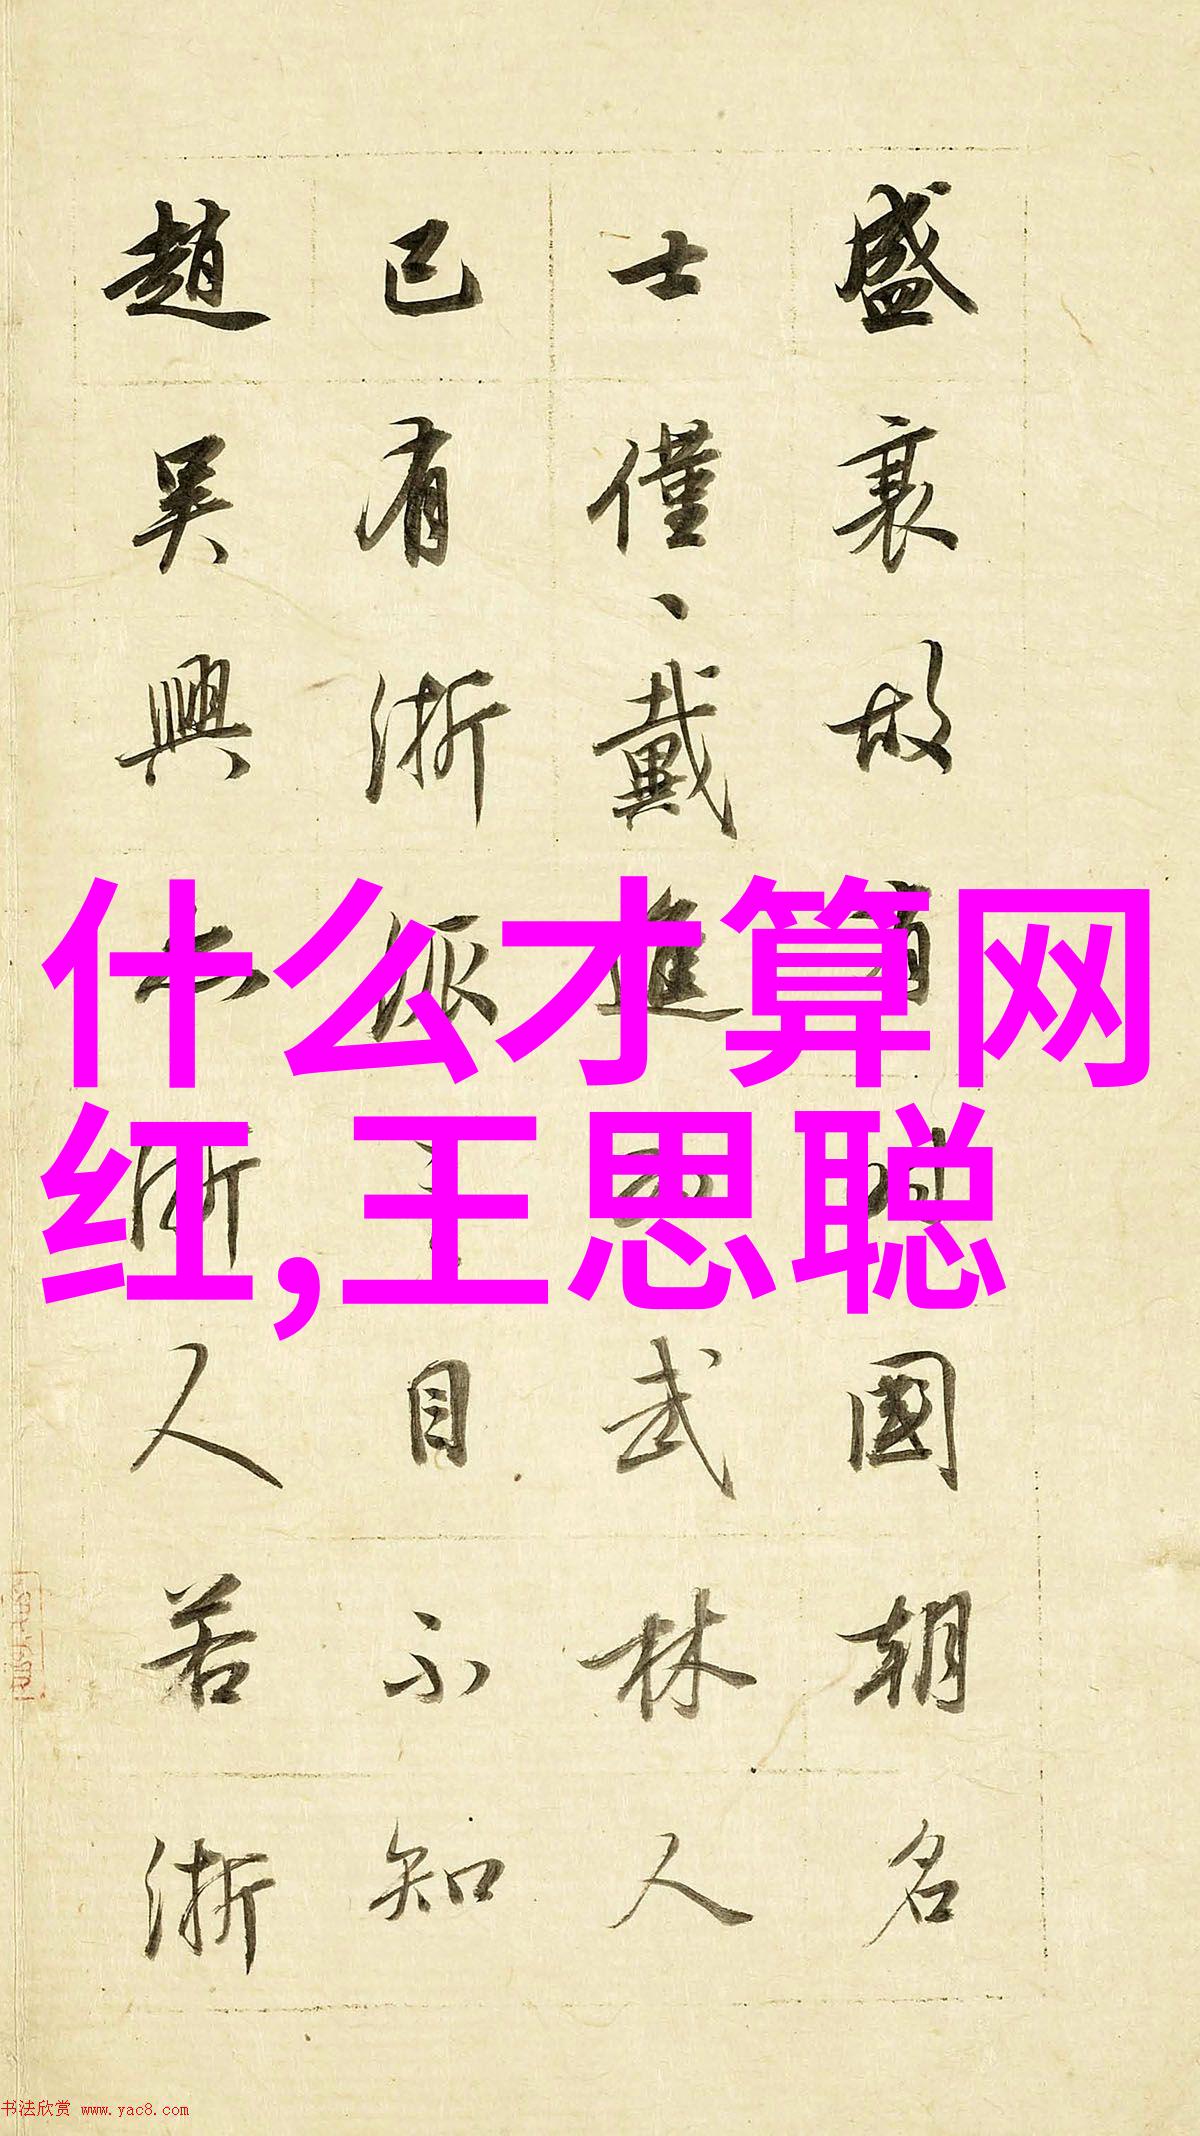 盛衰故有時國朝名
士僅、戴進為武林人
已有浙派之目不知
趙吳興亦浙人若浙
什么才算网
红,王思聪
书法欣赏 www.yac8.com